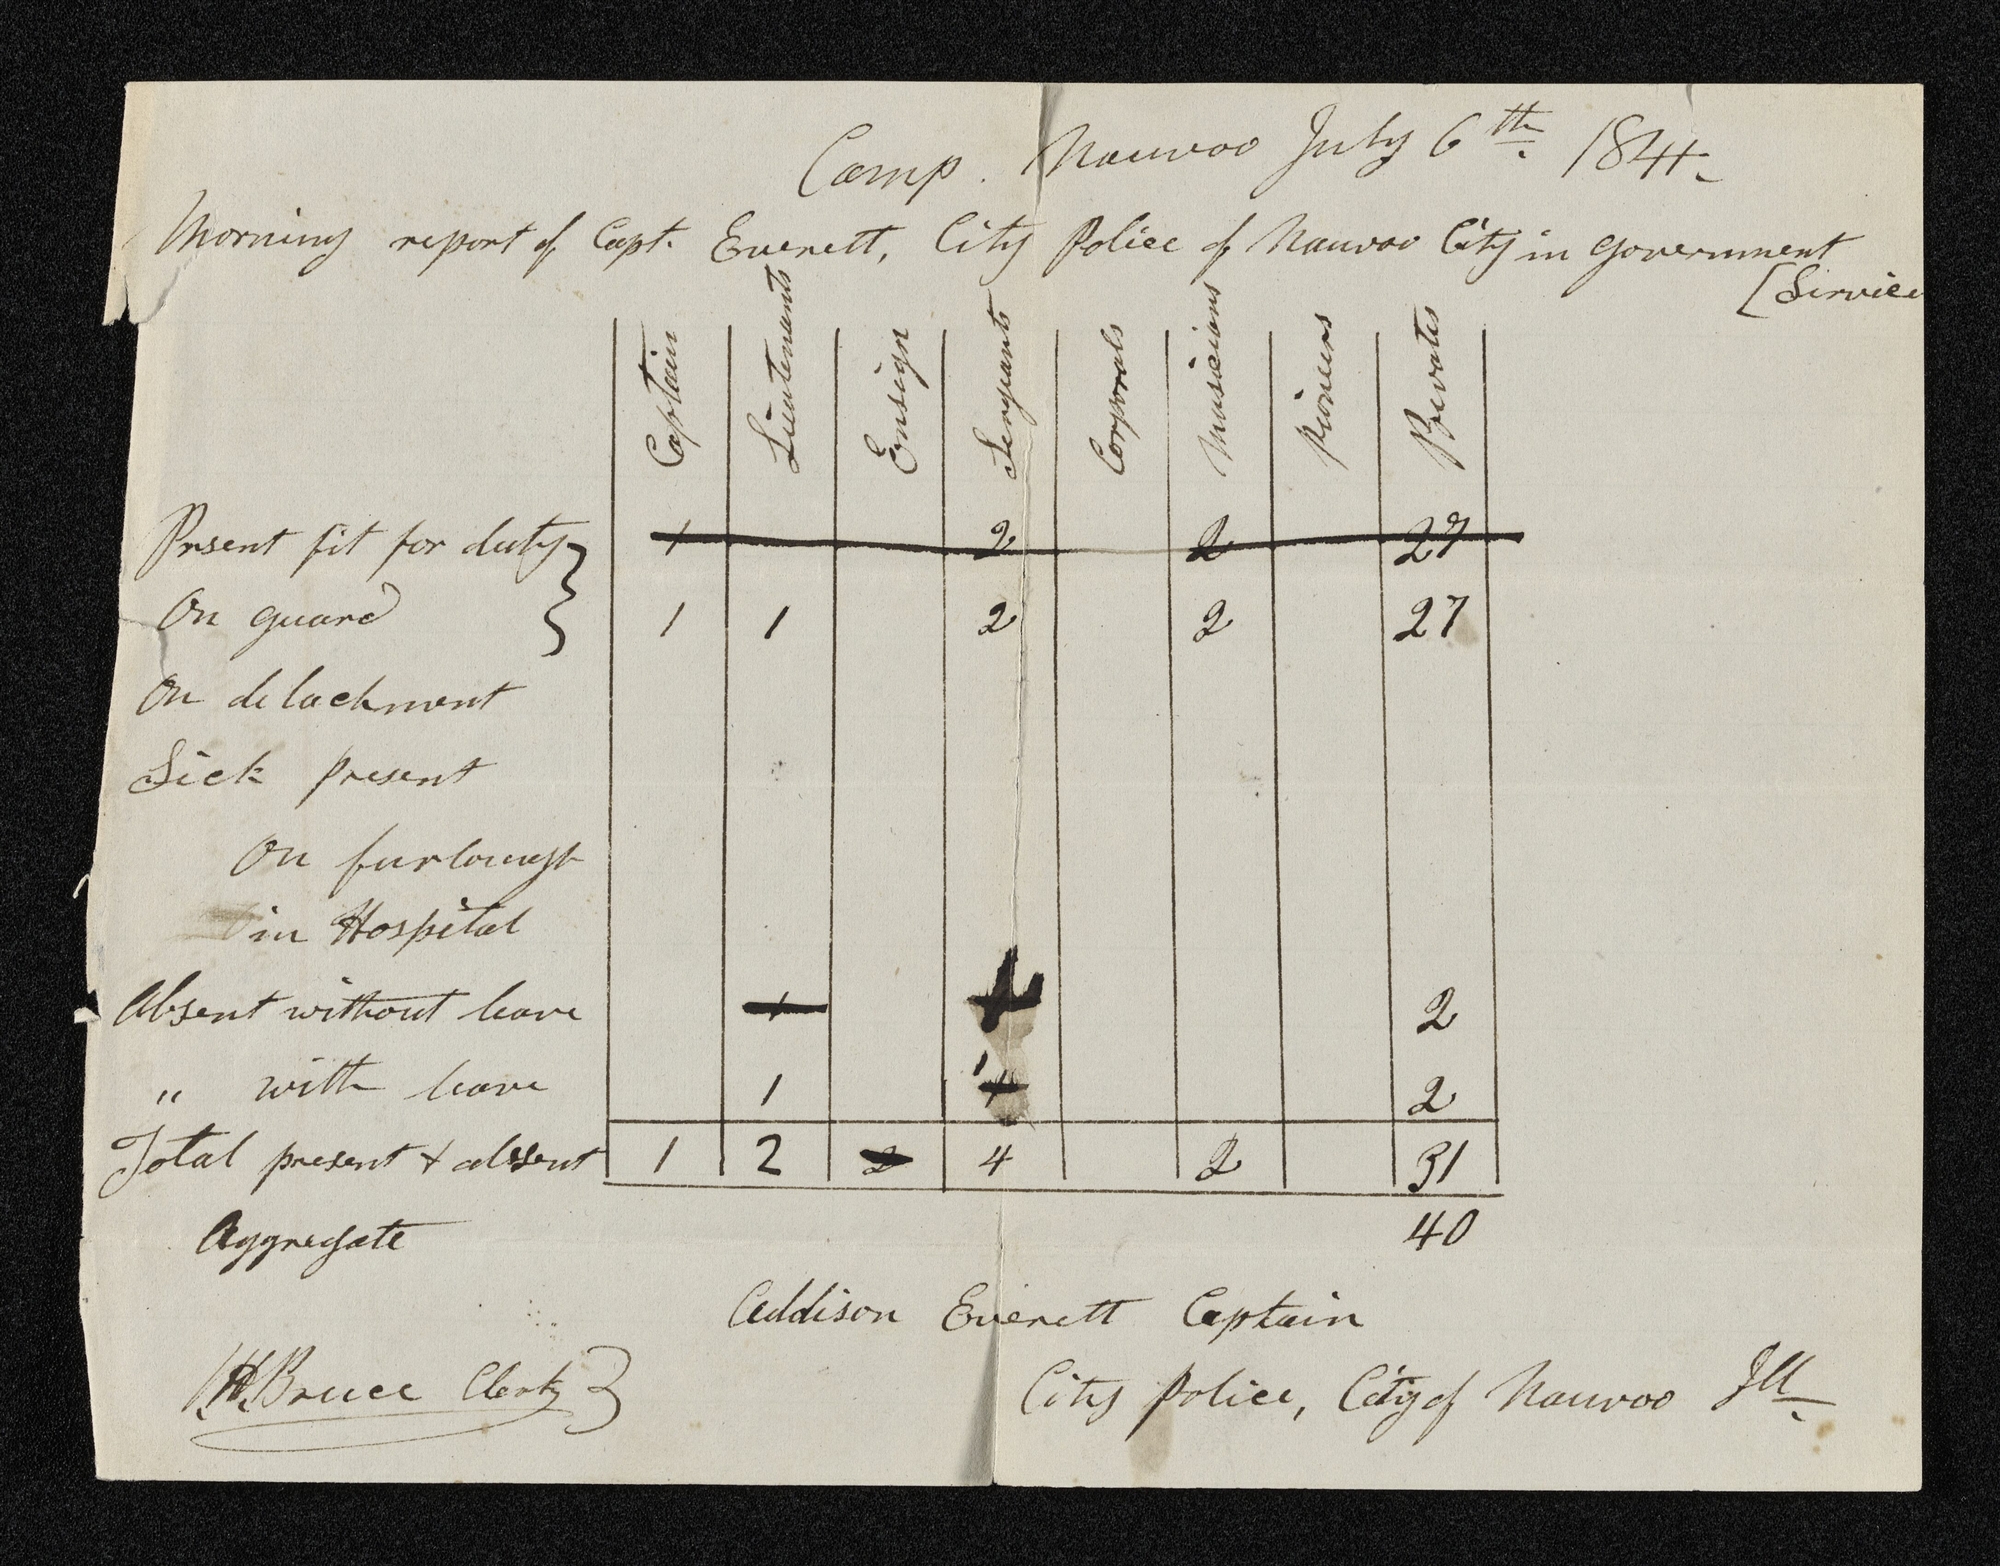 Camp. Nauvoo July 6th 1844.
Morning report of Capt. Everett, City Police of Nauvoo City in government
[Service
Captain Lieutenants Ensign Sergeants Corporals Musicians Pioneers Privates
Prsent fit for duty } 1 2 2 27
On guard } 1 1 2 2 27
On detachment
Sick present
On furlough
in Hospital
Absent without leave 1 2
" with leave 1 1 2
Total present + absent 1 2 2 4 2 31
Aggregate 40
Addison Everett Captain
Bruce Clerk }
City Police, City of Nauvoo Ill